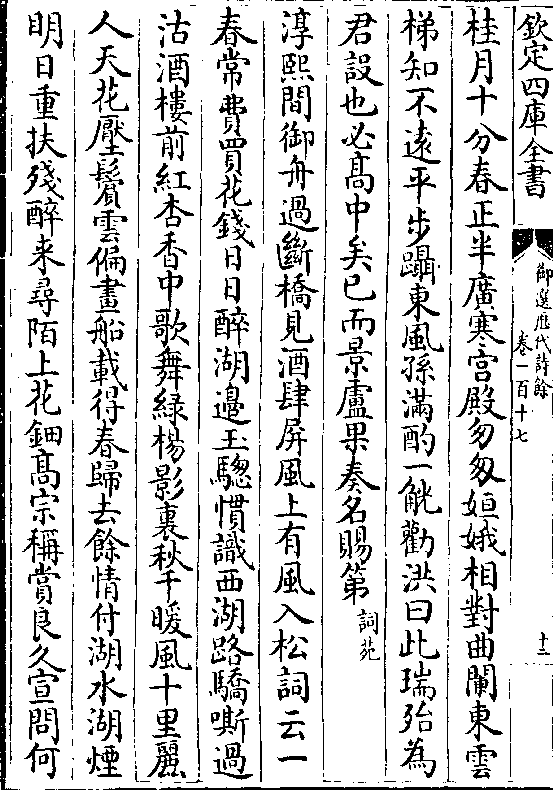 欽定四庫全書
御選歷代詩餘
卷一百十七
十二
桂月十分春正半廣寒宮殿匆匆姮娥相對曲闌東雲
梯知不遠平步躡東風孫滿酌一觥勸洪曰此瑞殆為
君設也必髙中矣已而景盧果奏名賜第詞苑
淳熙間御舟過斷橋見酒肆屏風上有風入松詞云一
春常費買花錢日日醉湖邉玉驄慣識西湖路驕嘶過
沽酒樓前紅杏香中歌舞綠楊影裏秋千暖風十里麗
人天花壓鬢雲偏畫船載得春歸去餘情付湖水湖煙
明日重扶殘醉来尋陌上花鈿髙宗稱賞良久宣問何